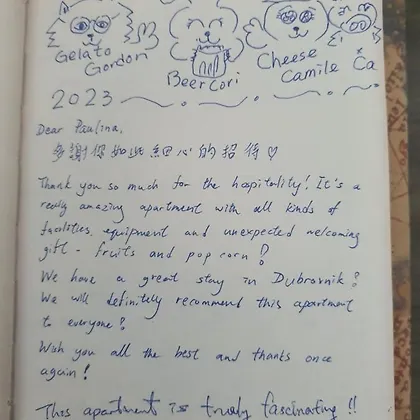 Gelato Gordon
Beer Cori
Cheese Camile Ča
2023
Dear Paulina,
多謝你如此細心的招待♡
Thank you so much for the hospitality! It's a
really amazing apartment with all kinds of
facilities, equipment and unexpected welcoming
gift - fruits and pop corn!
We have a great stay in Dubrovnik!
We will definitely recommend this apartment
to everyone!
Wish you all the best and thanks once
again!
This apartment is truly fascinating!!